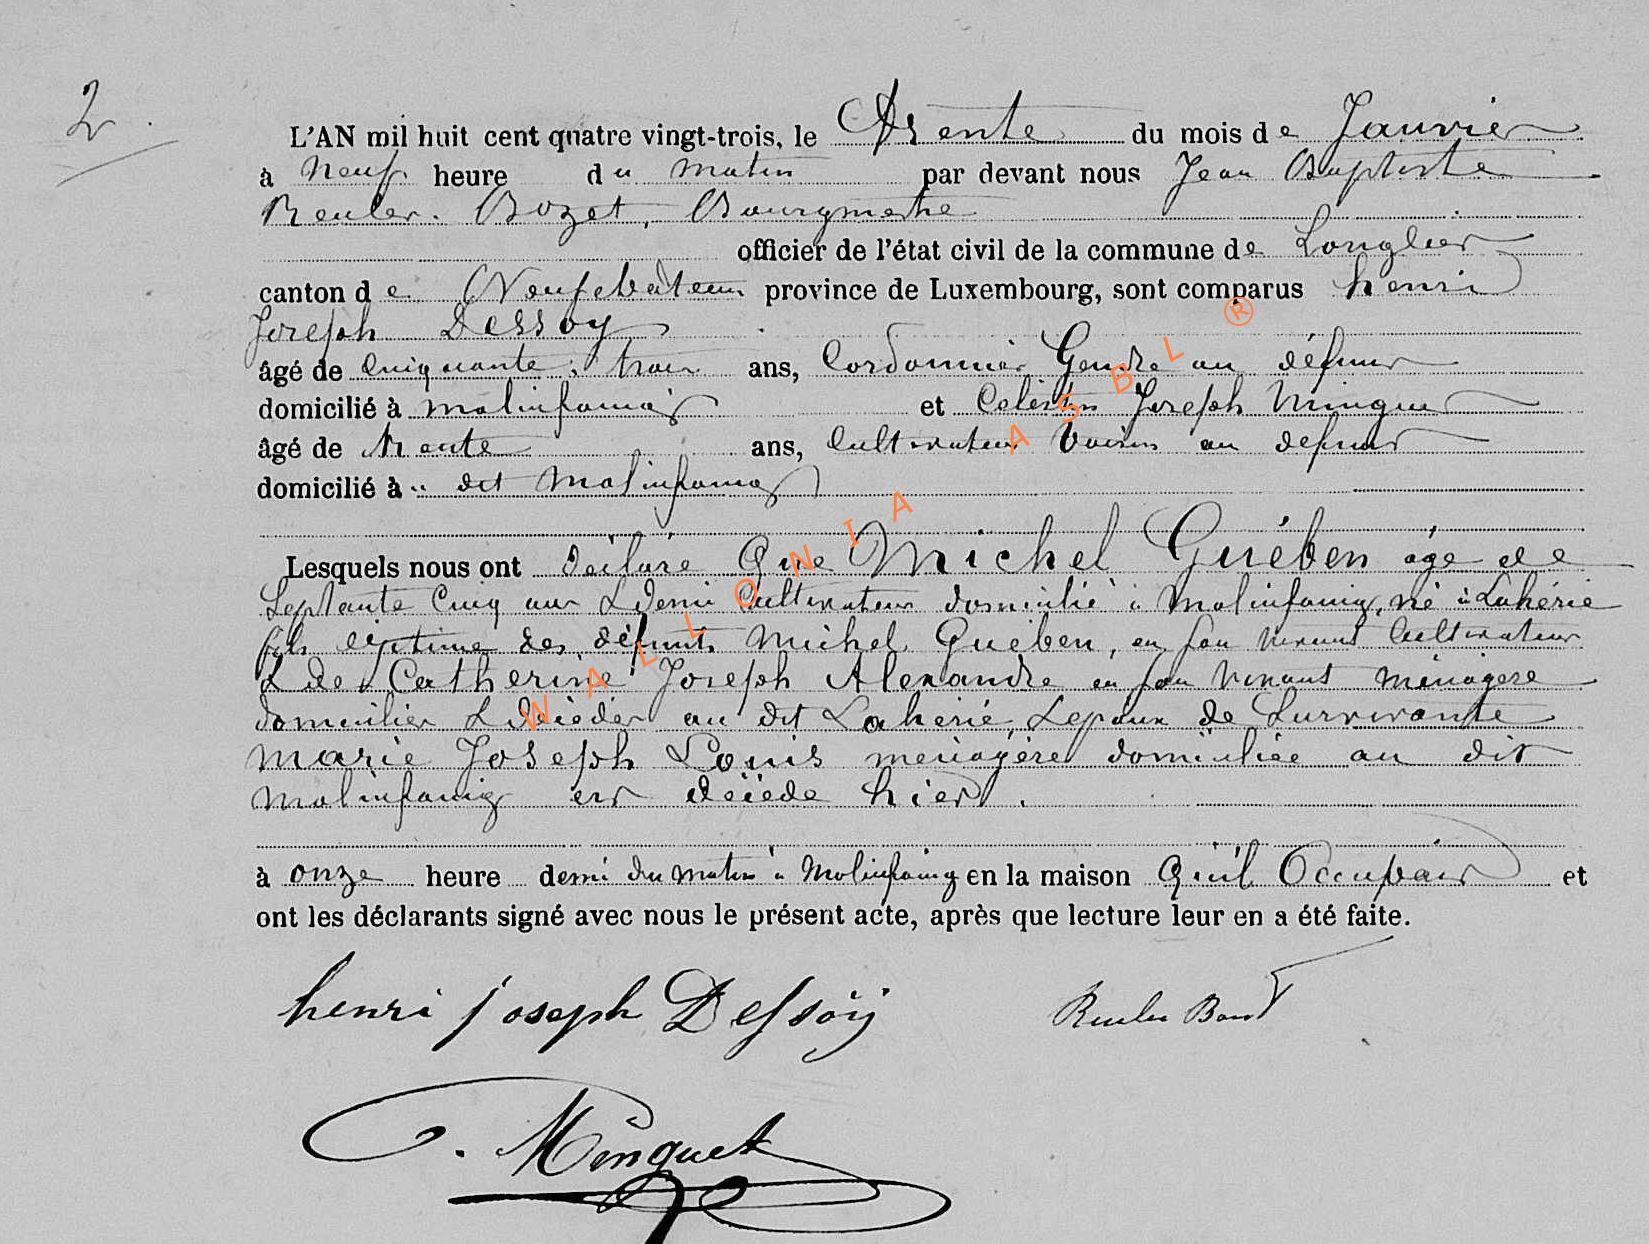 2
L'AN mil huit cent quatre vingt-trois, le Trente du mois de Janvier
à neuf heure du matin par devant nous Jean Baptiste
Reuler. Bozet, Bourgmestre
officier de l'état civil de la commune de Longlier
canton de Neufchâteau province de Luxembourg, sont comparus henri
Joseph Dessoy
âgé de Cinquante trois ans, Cordonnier Gendre au défunt
domicilié à molinfaing et Célestin Joseph Minguet
âgé de trente ans, Cultivateur Voisin au defunt
domicilié à dit Molinfaing
Lesquels nous ont déclaré Que Michel Guében âgé de
Septante Cinq ans & demi Cultivateur domicilié à Molinfaing, né à Lahérie
fils légitime des défunts Michel Guében, en son vivant Cultivateur
& de Catherine Joseph Alexandre en son vivant ménagère
domiciliés & décédés au dit Lahérie, Lepoux de Survivante
marie Joseph Louis menagère domiciliée au dit
molinfaing est décédé hier.
à onze heure demi du matin à Molinfaing en la maison Qu'il Occupait et
ont les déclarants signé avec nous le présent acte, après que lecture leur en a été faite.
henri joseph Dessoÿ Reuler
C. Minguet
WALLONIA ASBL ®